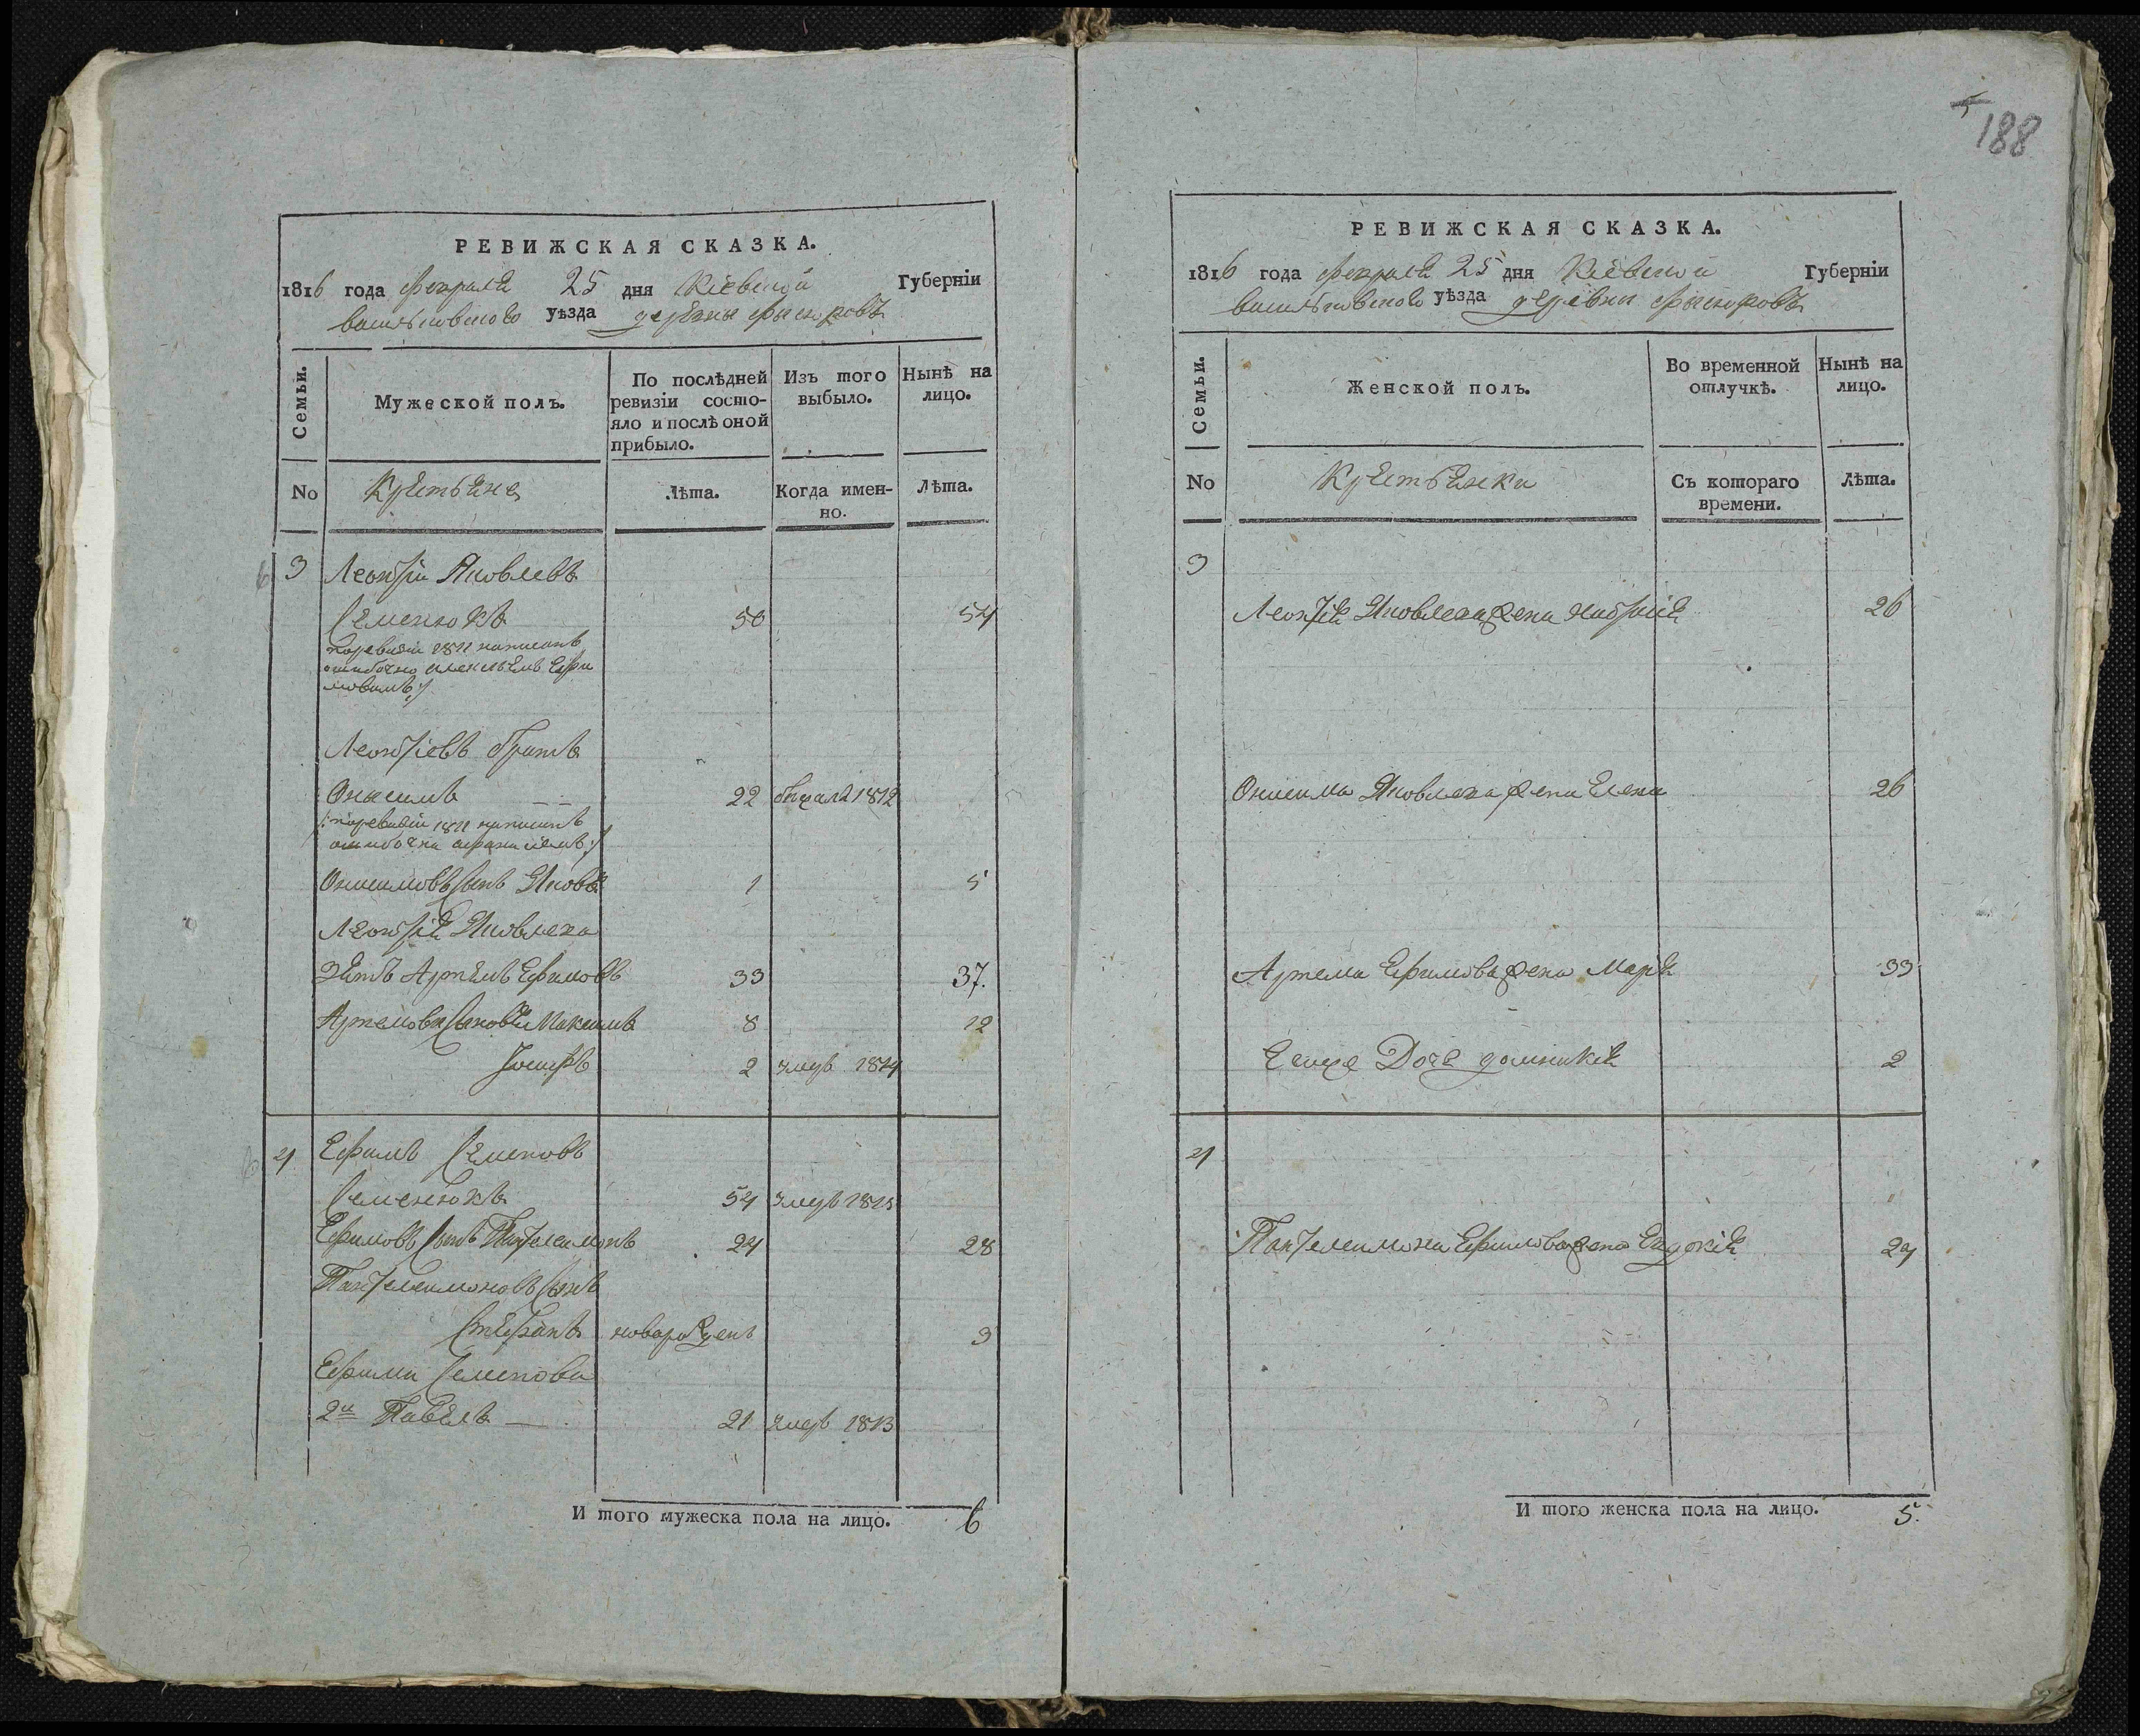 РЕВИЖСКАЯ СКАЗКА.
1816 года февраля 25 дня Кіевской Губерніи
васильковского уѣзда деревни
Семьи.
Мужеской полъ.
По послѣдней ревизіи состо-
яло и послѣ оной
прибыло.
Изъ того
выбыло.
Нынѣ на
лицо.
No
Крестьяне
Лѣта.
Когда имен-
но.
Лѣта.
3 Леонтій Яковлевъ
Семенюкъ 50 54
по ревизіи 1811 написанъ
ошибочно Алексѣемъ Ефи
мовимъ:/
Леонтіевъ братъ
Онисимъ 22 1812
/:по ревизіи 1811 написанъ
ошибочно :/
Онисимовъ сынъ Яковъ 1 5
Леонтія Яковлева
зять Артемъ Ефимовъ 33 37.
Артемовы сыновья Максимъ 8 12
Іосифъ 2 умеръ 1814
4 Ефимъ Семеновъ
Семенюкъ 54 умеръ 1815
Ефимовъ сынъ Пантелеимонъ 24 28
Пантелеимоновъ сынъ
Стефанъ новорожденъ 3
Ефима Семенова
2й Павелъ 21 умеръ 1813
И того мужеска пола на лицо. 6
188
РЕВИЖСКАЯ СКАЗКА.
1816 года февраля 25 дня Кіевской Губерніи
васильковского уѣзда деревни
Семьи.
Женской полъ.
Во временной
отлучкѣ.
Нынѣ на
лицо.
No
Крестьянки
Съ котораго
времени.
Лѣта.
3
Леонтія Яковлева жена 26
Онисима Яковлева жена Елена 26
Артема Ефимова жена Марія 33
Его же дочь Домникія 2
4
Пантелеимона Ефимова жена Евдокія 24
И того женска пола на лицо. 5.